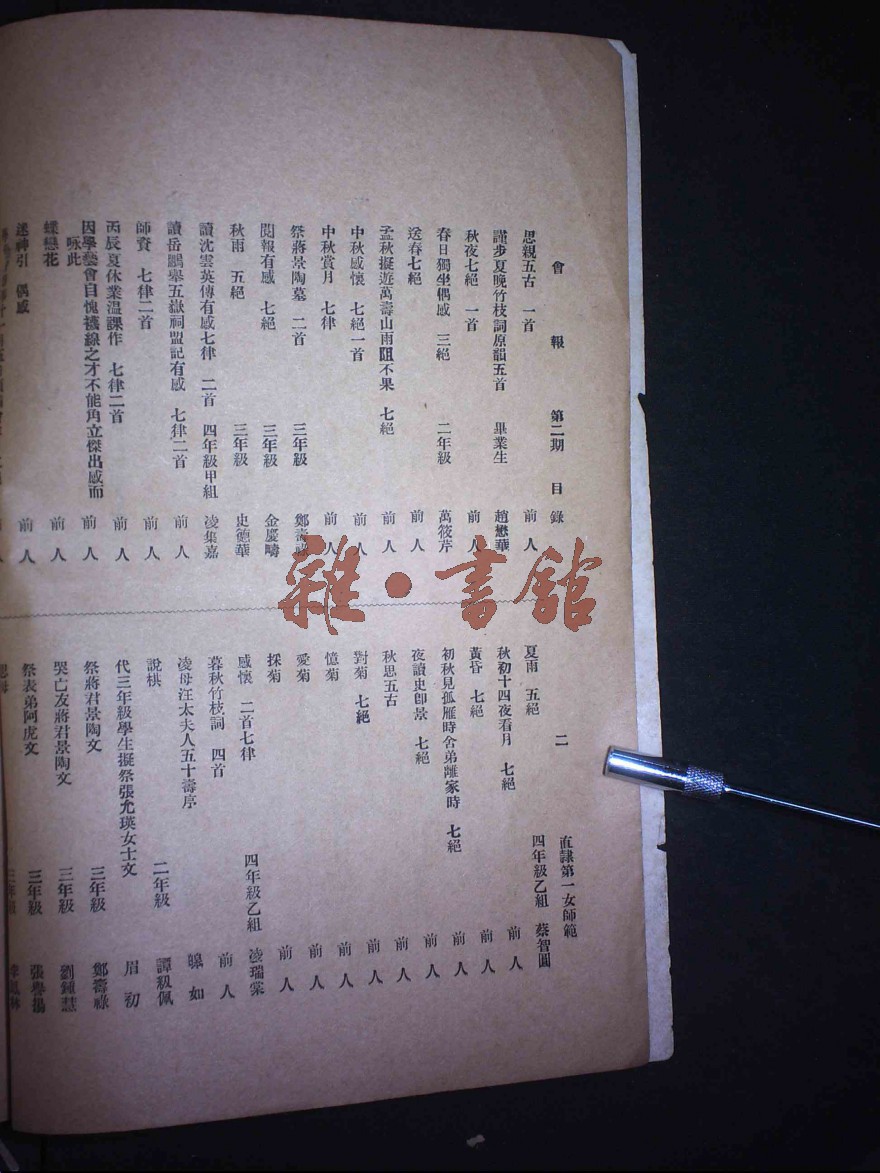 會報 第二期 目錄
思親五古 一首 前人
謹步夏晚竹枝詞原韻五首 畢業生 趙懋華
秋夜七絕 一首 前人
春日獨坐偶感 三絕 二年級 萬筱芹
送春七絕 前人
孟秋擬遊萬壽山雨阻不果 七絕 前人
中秋感懷 七絕一首 前人
中秋賞月 七律 前人
祭蔣景陶墓 二首 三年級 鄭壽
閱報有感 七絕 三年級 金慶疇
秋雨 五絕 三年級 史德華
讀沈雲英傳有感七律 二首 四年級甲組 凌集嘉
讀岳鵬舉五嶽祠盟記有感 七律二首 前人
師資 七律二首 前人
丙辰夏休業溫課作 七律二首 前人
因學藝會自愧襪線之才不能角立傑出感而
咏此 前人
蝶戀花 前人
迷神引 偶感 前人
二 直隸第一女師範
夏雨 五絕 四年級乙組 蔡智圓
秋初十四夜看月 七絕 前人
黃昏 七絕 前人
初秋見孤雁時舍弟離家時 七絕 前人
夜讀史卽景 七絕 前人
秋思五古 前人
對菊 七絕 前人
憶菊 前人
愛菊 前人
採菊 前人
感懷 二首七律 四年級乙組 凌瑞棠
暮秋竹枝詞 四首 前人
凌母汪太夫人五十壽序 皞如
說棋 二年級 譚級佩
代三年級學生擬祭張尤瑛女士文 眉初
祭蔣君景陶文 三年級 鄭壽祿
哭亡友蔣君景陶文 三年級 劉鍾慧
祭表弟阿虎文 三年級 張譽揚
雜·書館